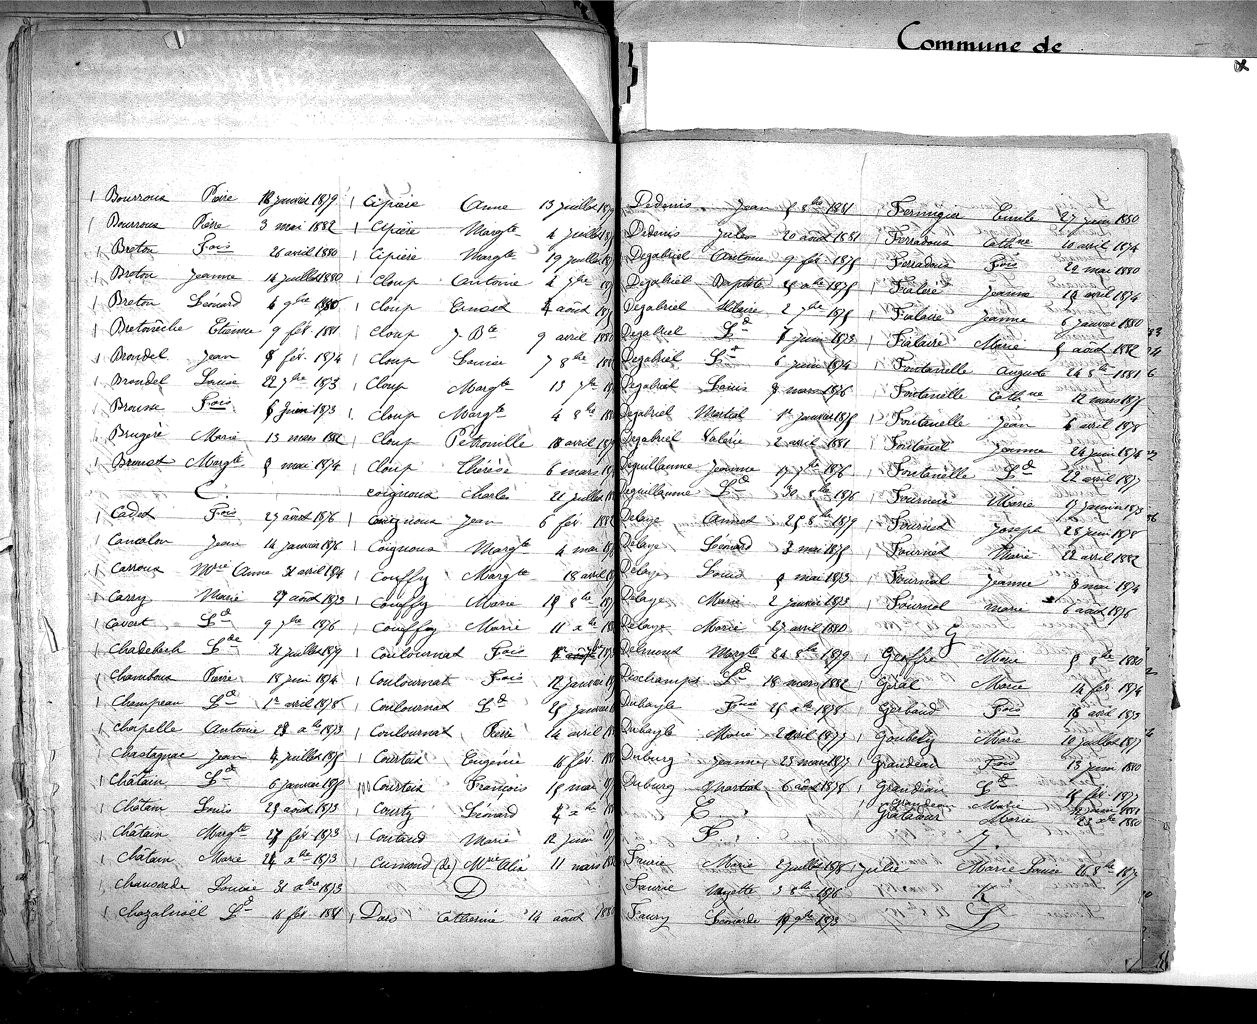 Commune de
Bourroux Pierre 18 janvier 1879
Bourroux Pierre 3 mai 1882
Breton Fois 26 avril 1880
Breton Jeanne 14 juillet 1880
Breton Leonard 4 9bre 1880
Bretonêche Etienne 9 fév. 1881
Brondel Jean 8 fév. 1874
Brondel Louise 22 7bre 1873
Brousse Fois 6 juin 1873
Brugère Marie 13 mars 1882
Brunet Margte 8 mai 1874
C.
Cadet Fois 27 août 1876
Cancalon Jean 14 janvier 1876
Carroux Mrie Anne 31 avril 1874
Carry Marie 27 août 1873
Cavert Ld 9 7bre 1876
Chadebech Lde 31 juillet 1879
Chambon Pierre 18 juin 1874
Champeau Ld 1er avril 1878
Chapelle Antoine 28 xbre 1873
Chastagnac Jean 4 juillet 1875
Châtain Ld 6 janvier 1875
Châtain Louis 25 août 1873
Châtain Margte 27 fév. 1873
Châtain Marie 24 xbre 1873
Chaussade Louise 31 xbre 1873
Chazalnoël Ld 16 fév. 1881
Cipière Anne 13 juillet
Cipière Margte 4 juillet
Cipière Margte 19 juillet
Cloup Antoine 4 7bre
Cloup Ernest 4 août
Cloup J. Bte 9 avril
Cloup Louise 7 8bre
Cloup Margte 13 7bre
Cloup Margte 4 8bre
Cloup Pétronille 18 avril
Cloup Thérèse 6 mars
Coignoux Charles 21 juillet
Coignoux Jean 6 fév.
Coignoux Margte 4 mai
Couffy Margte 18 avril
Couffy Marie 19 8bre
Couffy Marie 11 xbre
Coulournat Fois
Coulournat Fois 12 janvier
Coulournat Ld 25 janvier
Coulournat Pierre 14 avril
Courtois Eugénie 16 fév.
Courtois François 15 mai
Courty Léonard 4 xbre
Coutaud Marie 12 juin
Cumond (de) Mrie Alix 11 mars
D
Dars Catherine 14 août
Dedenis Jean 5 8bre 1881
Dedenis Jules 20 août 1881
Degabriel Antoine 9 fév. 1875
Degabriel Baptiste 25 xbre 1875
Degabriel Hilaire 2 7bre 1875
Degabriel Ld 7 juin 1873
Degabriel Ld 6 juin 1874
Degabriel Louis 8 mars 1876
Degabriel Martial 1er janvier 1875
Degabriel Valérie 2 avril 1881
Deguillaume Jeanne 17 7bre 1876
Deguillaume Ld 30 8bre 1876
Delage Annet 25 8bre 1879
Delage Léonard 3 mai 1875
Delage Louis 8 mai 1873
Delage Marie 2 janvier 1873
Delage Marie 27 avril 1880
Delmond Margte 24 8bre 1879
Deschamps Ld 18 mars 1882
Dubayle Fois 25 xbre 1878
Dubayle Marie 2 avril 1877
Duburg Jeanne 23 mars 1877
Duburg Martial 6 août 1878
E.
F.
Faurie Marie 2 juillet
Faurie Mayette 3 8bre 1876
Faury Léonarde 19 9bre 1873
Fermigier Emile 27 juin 1880
Ferradoux Cathne 10 avril 1874
Ferradoux Fois 22 mai 1880
Fialaire Jeanne 14 avril 1874
Fialaire Jeanne 6 janvier 1880
Fialaire Marie 5 août 1882
Fontanelle Auguste 24 8bre 1881
Fontanille Cathne 12 mars 187
Fontanelle Jean 4 avril 1878
Fontanel Jeanne 24 juin 1874
Fontanelle Ld 22 avril 1877
Fournier Marie 17 janvier 1873
Fournet Joseph 28 juin 1878
Fournet Marie 22 avril 1882
Fournol Jeanne 8 mai 1874
Fournol Marie 6 août 1876
G
Geoffre Marie 5 8bre 1880
Géral Marie 14 fév. 1874
Gerbaud Fois 16 avril 1873
Goubely Marie 10 juillet 1877
Grandeau Fois 13 juin 1880
Grandeau Ld 15 fév. 1877
Grandeau Marie
Gratadour Marie 25 xbre 1880
J.
Julie Marie Louise 26 8bre 187
K
L